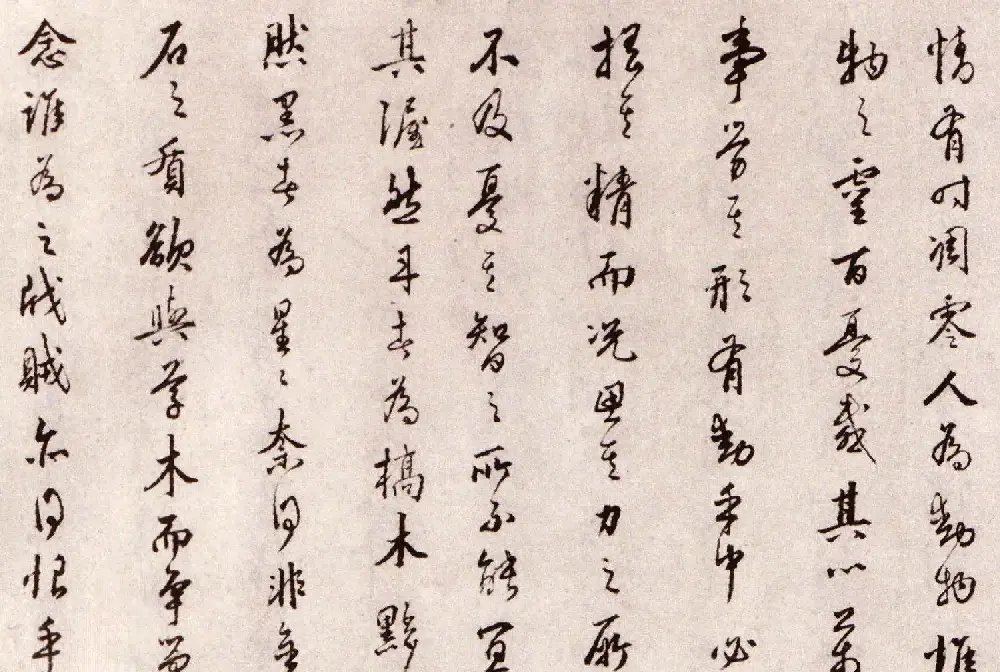 情有時凋零人為動物惟
物之靈百憂感其心萬
事勞其形有動乎中必
搖其精而況思其力之所
不及憂其智之所不能宜
其渥然丹者為槁木黟
然黑者為星〻奈何非金
石之質欲與草木而爭榮
念誰為之戕賊亦何恨乎